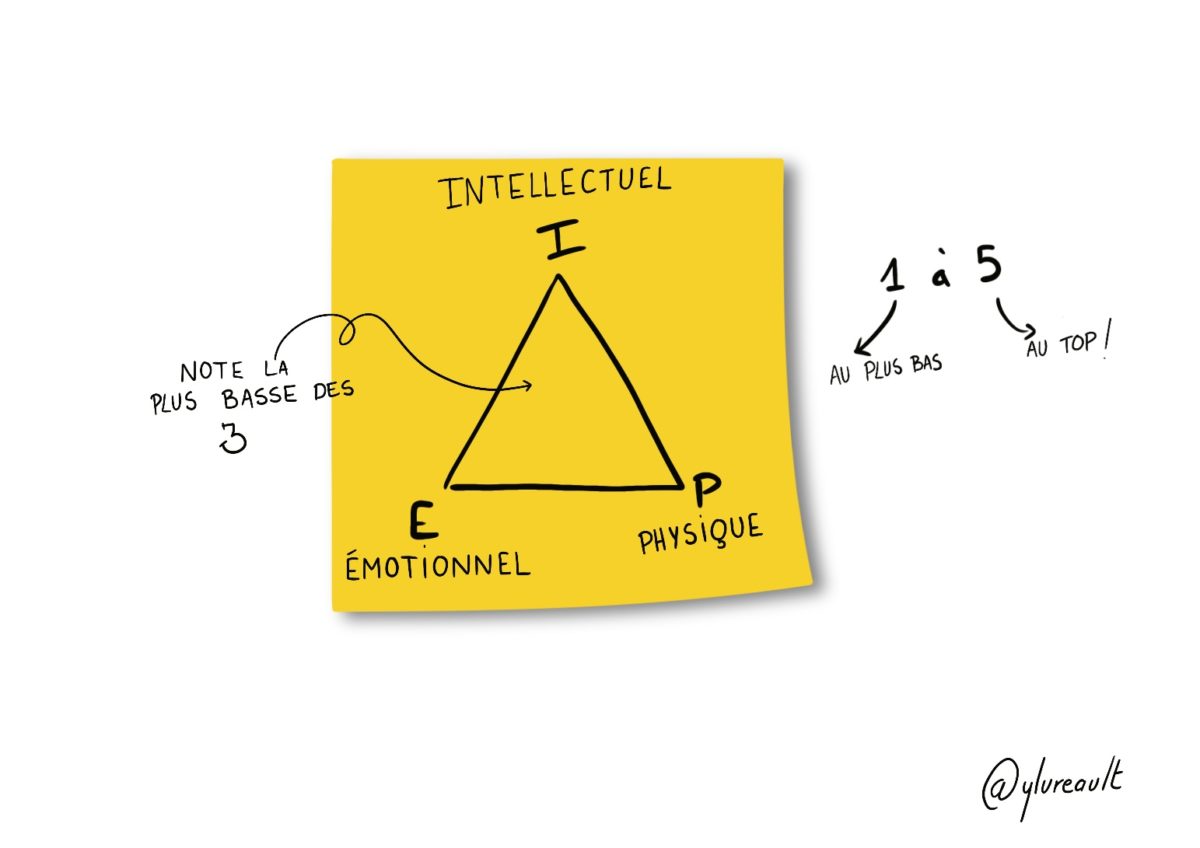 INTELLECTUEL
I
1 à 5
NOTE LA
PLUS BASSE DES
3
AU PLUS BAS
AU TOP!
E
ÉMOTIONNEL
P
PHYSIQUE
@ylureault